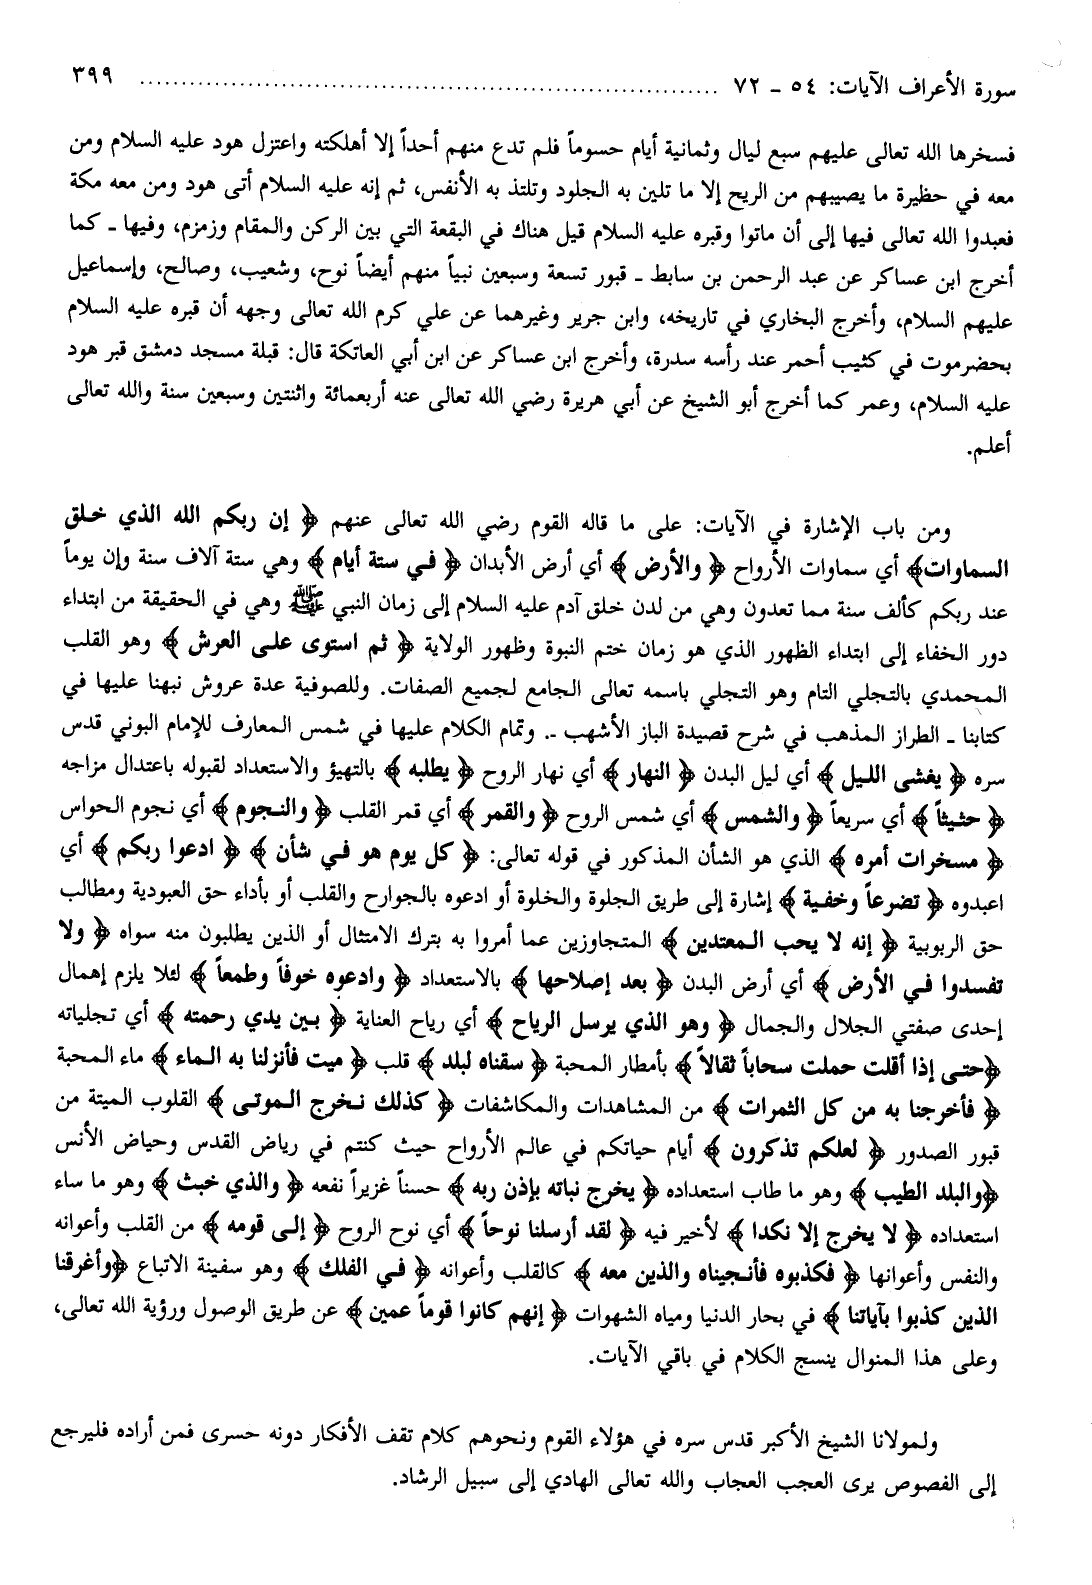 سورة الأعراف الآيات: ٥٤ ـ ٧٢ ........................................................................ ٣٩٩
فسخرها الله تعالى عليهم سبع ليال وثمانية أيام حسوماً فلم تدع منهم أحداً إلا أهلكته واعتزل هود عليه السلام ومن
معه في حظيرة ما يصيبهم من الريح إلا ما تلين به الجلود وتلتذ به الأنفس، ثم إنه عليه السلام أتى هود ومن معه مكة
فعبدوا الله تعالى فيها إلى أن ماتوا وقبره عليه السلام قيل هناك في البقعة التي بين الركن والمقام وزمزم، وفيها ـ كما
أخرج ابن عساكر عن عبد الرحمن بن سابط ـ قبور تسعة وسبعين نبياً منهم أيضاً نوح، وشعيب، وصالح، وإسماعيل
عليهم السلام، وأخرج البخاري في تاريخه، وابن جرير وغيرهما عن علي كرم الله تعالى وجهه أن قبره عليه السلام
بحضرموت في كثيب أحمر عند رأسه سدرة، وأخرج ابن عساكر عن ابن أبي العاتكة قال: قبلة مسجد دمشق قبر هود
عليه السلام، وعمر كما أخرج أبو الشيخ عن أبي هريرة رضي الله تعالى عنه أربعمائة واثنتين وسبعين سنة والله تعالى
أعلم.
ومن باب الإشارة في الآيات: على ما قاله القوم رضي الله تعالى عنهم ﴿ إن ربكم الله الذي خلق
السماوات﴾ أي سماوات الأرواح ﴿ والأرض ﴾ أي أرض الأبدان ﴿ في ستة أيام ﴾ وهي ستة آلاف سنة وإن يوماً
عند ربكم كألف سنة مما تعدون وهي من لدن خلق آدم عليه السلام إلى زمان النبي ﷺ وهي في الحقيقة من ابتداء
دور الخفاء إلى ابتداء الظهور الذي هو زمان ختم النبوة وظهور الولاية ﴿ ثم استوى على العرش ﴾ وهو القلب
المحمدي بالتجلي التام وهو التجلي باسمه تعالى الجامع لجميع الصفات. وللصوفية عدة عروش نبهنا عليها في
كتابنا ـ الطراز المذهب في شرح قصيدة الباز الأشهب ـ. وتمام الكلام عليها في شمس المعارف للإمام البوني قدس
سره ﴿ يغشى الليل ﴾ أي ليل البدن ﴿ النهار ﴾ أي نهار الروح ﴿ يطلبه ﴾ بالتهيؤ والاستعداد لقبوله باعتدال مزاجه
﴿ حثيثاً ﴾ أي سريعاً ﴿ والشمس ﴾ أي شمس الروح ﴿ والقمر ﴾ أي قمر القلب ﴿ والنجوم ﴾ أي نجوم الحواس
﴿ مسخرات أمره ﴾ الذي هو الشأن المذكور في قوله تعالى: ﴿ كل يوم هو في شأن ﴾ ﴿ ادعوا ربكم ﴾ أي
اعبدوه ﴿ تضرعاً وخفية ﴾ إشارة إلى طريق الجلوة والخلوة أو ادعوه بالجوارح والقلب أو بأداء حق العبودية ومطالب
حق الربوبية ﴿ إنه لا يحب المعتدين ﴾ المتجاوزين عما أمروا به بترك الامتثال أو الذين يطلبون منه سواه ﴿ ولا
تفسدوا في الأرض ﴾ أي أرض البدن ﴿ بعد إصلاحها ﴾ بالاستعداد ﴿ وادعوه خوفاً وطمعاً ﴾ لئلا يلزم إهمال
إحدى صفتي الجلال والجمال ﴿ وهو الذي يرسل الرياح ﴾ أي رياح العناية ﴿ بين يدي رحمته ﴾ أي تجلياته
﴿حتى إذا أقلت حملت سحاباً ثقالاً ﴾ بأمطار المحبة ﴿ سقناه لبلد ﴾ قلب ﴿ ميت فأنزلنا به الماء ﴾ ماء المحبة
﴿ فأخرجنا به من كل الثمرات ﴾ من المشاهدات والمكاشفات ﴿ كذلك نخرج الموتى ﴾ القلوب الميتة من
قبور الصدور ﴿ لعلكم تذكرون ﴾ أيام حياتكم في عالم الأرواح حيث كنتم في رياض القدس وحياض الأنس
﴿والبلد الطيب ﴾ وهو ما طاب استعداده ﴿ يخرج نباته بإذن ربه ﴾ حسناً غزيراً نفعه ﴿ والذي خبث ﴾ وهو ما ساء
استعداده ﴿ لا يخرج إلا نكدا ﴾ لأخير فيه ﴿ لقد أرسلنا نوحاً ﴾ أي نوح الروح ﴿ إلى قومه ﴾ من القلب وأعوانه
والنفس وأعوانها ﴿ فكذبوه فأنجيناه والذين معه ﴾ كالقلب وأعوانه ﴿ في الفلك ﴾ وهو سفينة الاتباع ﴿وأغرقنا
الذين كذبوا بآياتنا ﴾ في بحار الدنيا ومياه الشهوات ﴿ إنهم كانوا قوماً عمين ﴾ عن طريق الوصول ورؤية الله تعالى،
وعلى هذا المنوال ينسج الكلام في باقي الآيات.
ولمولانا الشيخ الأكبر قدس سره في هؤلاء القوم ونحوهم كلام تقف الأفكار دونه حسرى فمن أراده فليرجع
إلى الفصوص يرى العجب العجاب والله تعالى الهادي إلى سبيل الرشاد.